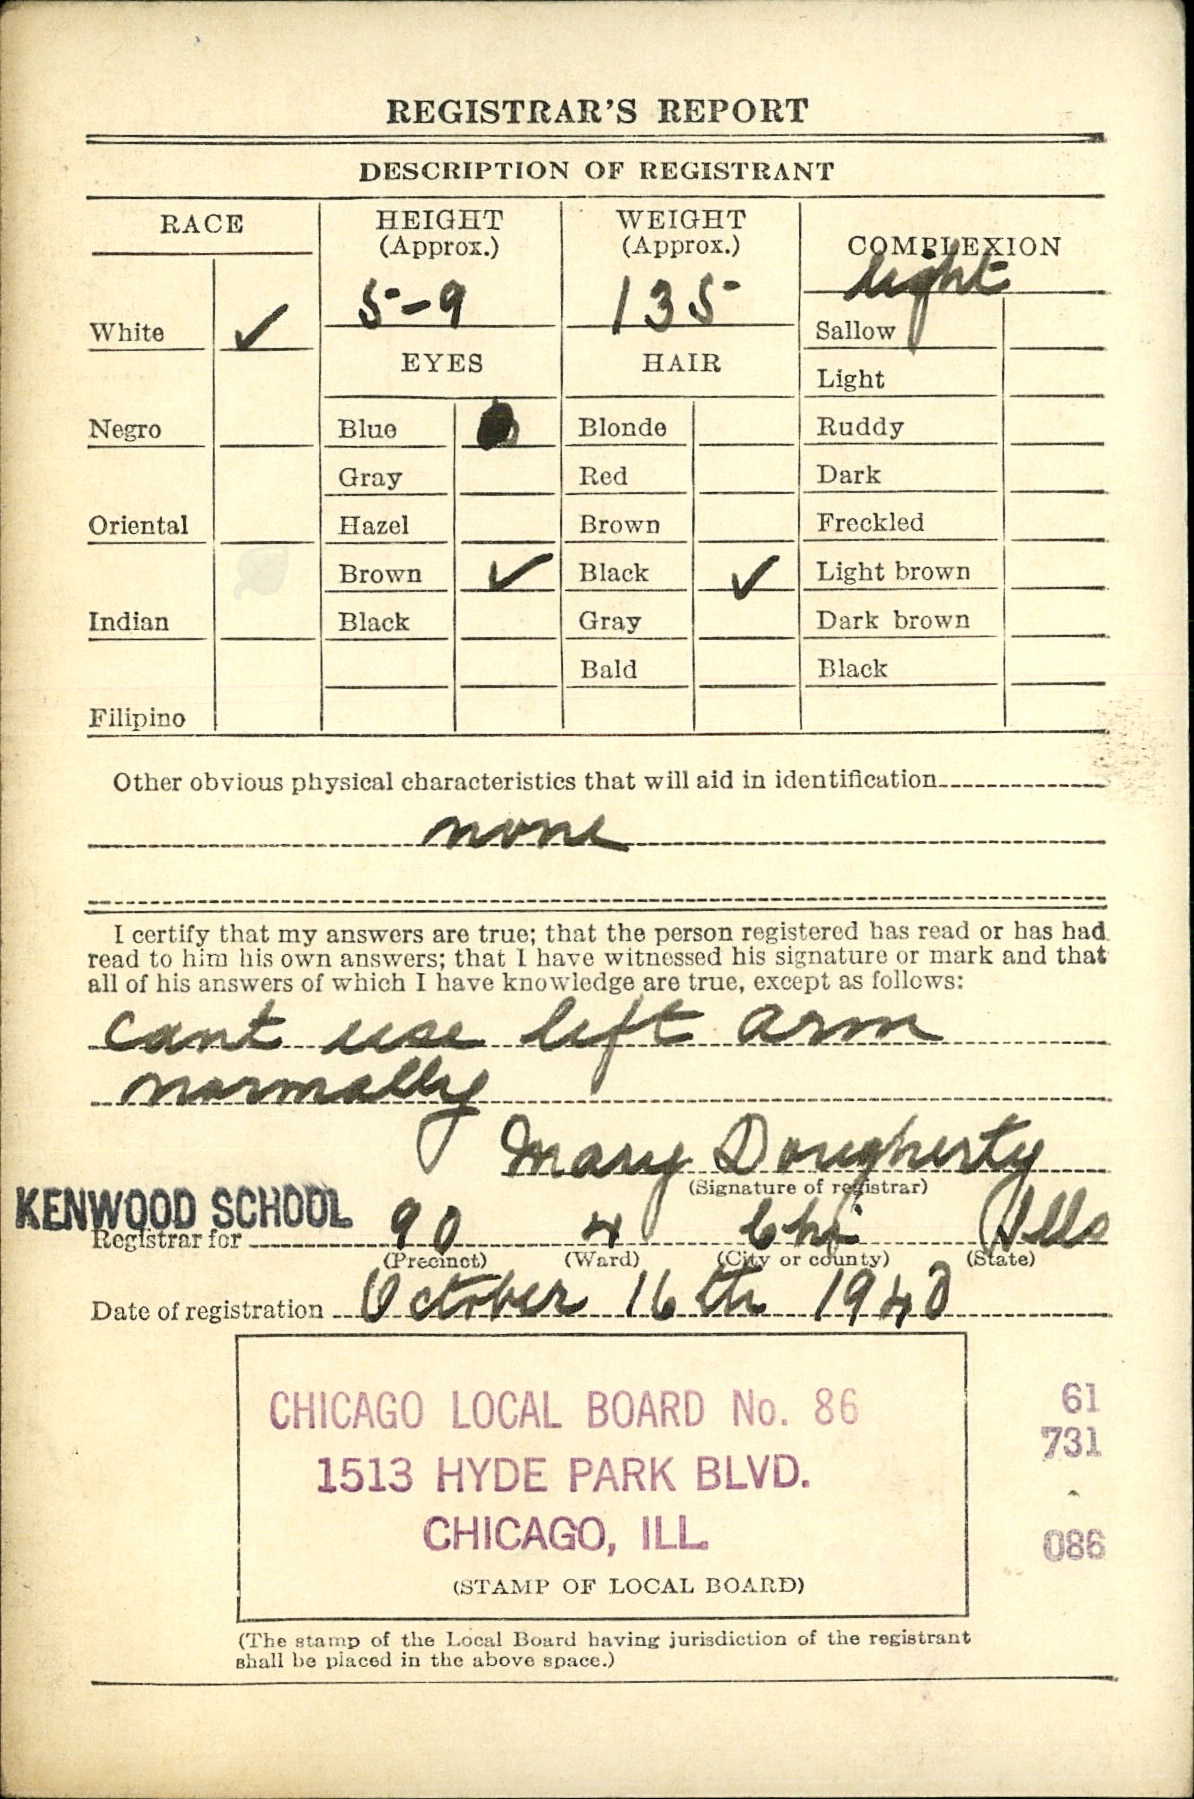 REGISTRAR'S REPORT
DESCRIPTION OF REGISTRANT
RACE
HEIGHT (Approx.)
WEIGHT (Approx.)
COMPLEXION
light
5-9
135
White ✓
Sallow
EYES
HAIR
Light
Negro
Blue
Blonde
Ruddy
Gray
Red
Dark
Oriental
Hazel
Brown
Freckled
Brown ✓
Black ✓
Light brown
Indian
Black
Gray
Dark brown
Bald
Black
Filipino
Other obvious physical characteristics that will aid in identification
none
I certify that my answers are true; that the person registered has read or has had
read to him his own answers; that I have witnessed his signature or mark and that
all of his answers of which I have knowledge are true, except as follows:
Cant use left arm
normally
Mary Dougherty
(Signature of registrar)
KENWOOD SCHOOL
Registrar for 90 4 Chi Ills
(Precinct) (Ward) (City or county) (State)
Date of registration October 16th 1940
CHICAGO LOCAL BOARD No. 86
61
1513 HYDE PARK BLVD.
731
CHICAGO, ILL.
086
(STAMP OF LOCAL BOARD)
(The stamp of the Local Board having jurisdiction of the registrant
shall be placed in the above space.)